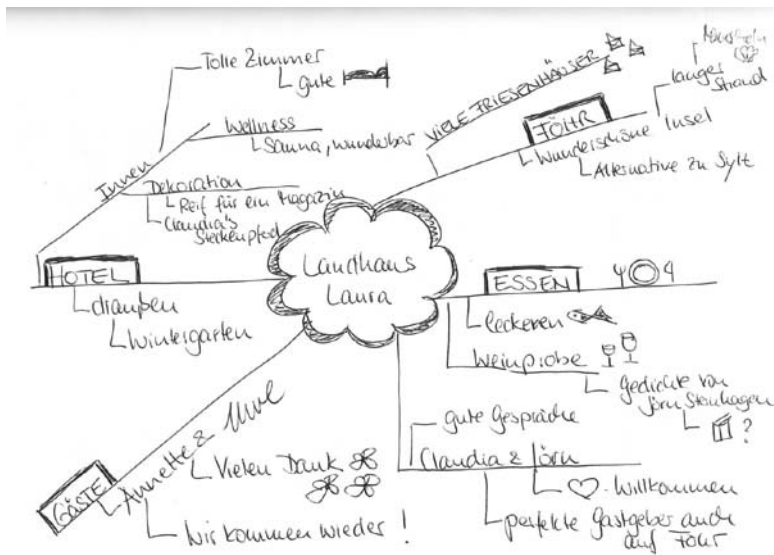 Landhaus
Laura
HOTEL
Innen
Tolle Zimmer
gute
Wellness
Sauna, wunderbar
Dekoration
Reif für ein Magazin
Claudia's
Steckenpferd
draußen
Wintergarten
FÖHR
VIELE FRIESENHÄUSER
Wunderschöne Insel
Alternative zu Sylt
langer
Strand
Muscheln
ESSEN
leckeren
Weinprobe
Gedichte von
Jörn Stenhagen
?
Claudia & Jörn
gute Gespräche
Willkommen
perfekte Gastgeber auch
auf Föhr
GÄSTE
Annette & Uwe
Vielen Dank
Wir kommen wieder !